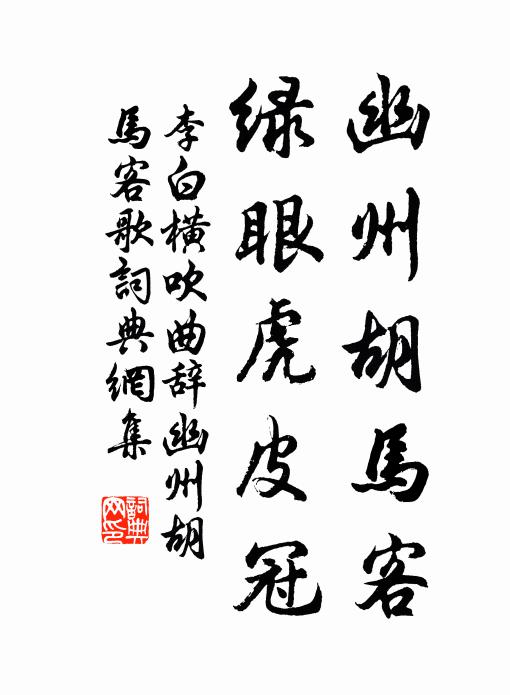 幽州胡馬客
緑眼虎皮冠
李白橫吹曲辞幽州胡
馬客歌詞典網集
詞典网印